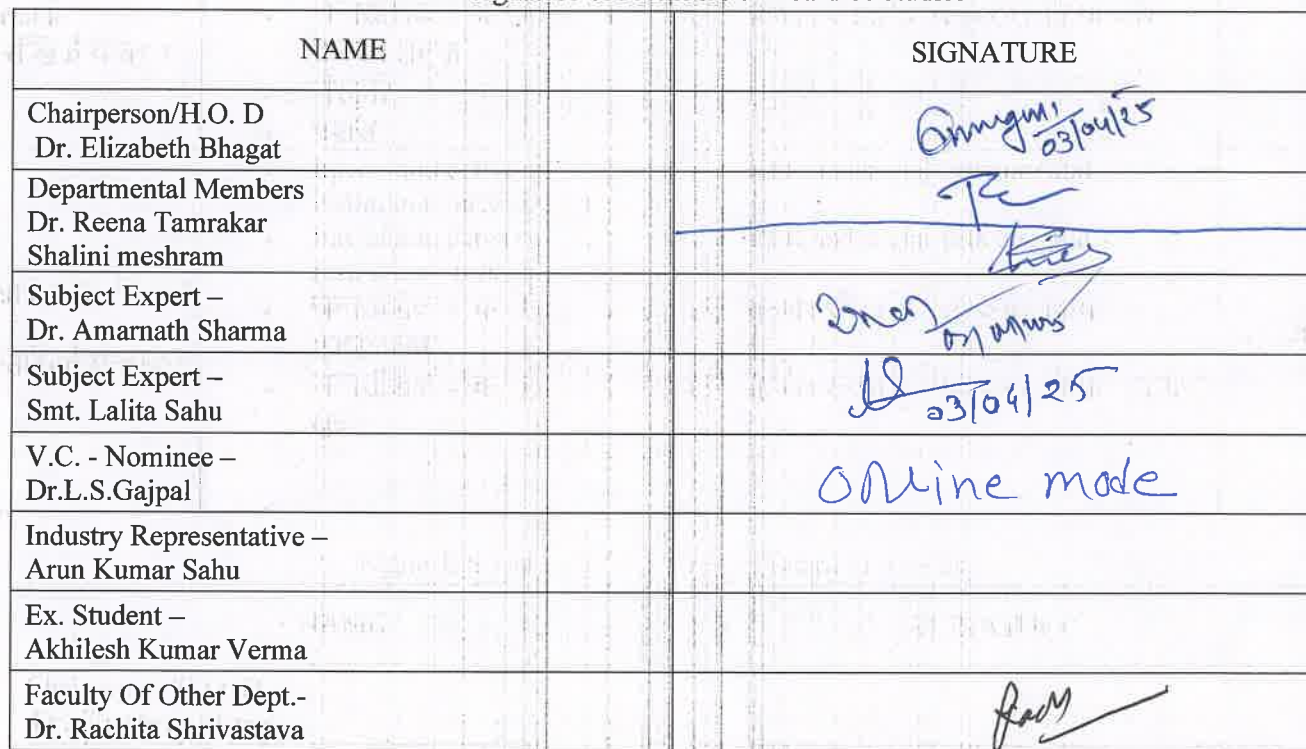 NAME
SIGNATURE
Chairperson/H.O. D
Dr. Elizabeth Bhagat
03/04/25
Departmental Members
Dr. Reena Tamrakar
Shalini meshram
Subject Expert –
Dr. Amarnath Sharma
Subject Expert –
Smt. Lalita Sahu
03/04/25
V.C. - Nominee –
Dr.L.S.Gajpal
Online mode
Industry Representative –
Arun Kumar Sahu
Ex. Student –
Akhilesh Kumar Verma
Faculty Of Other Dept.-
Dr. Rachita Shrivastava